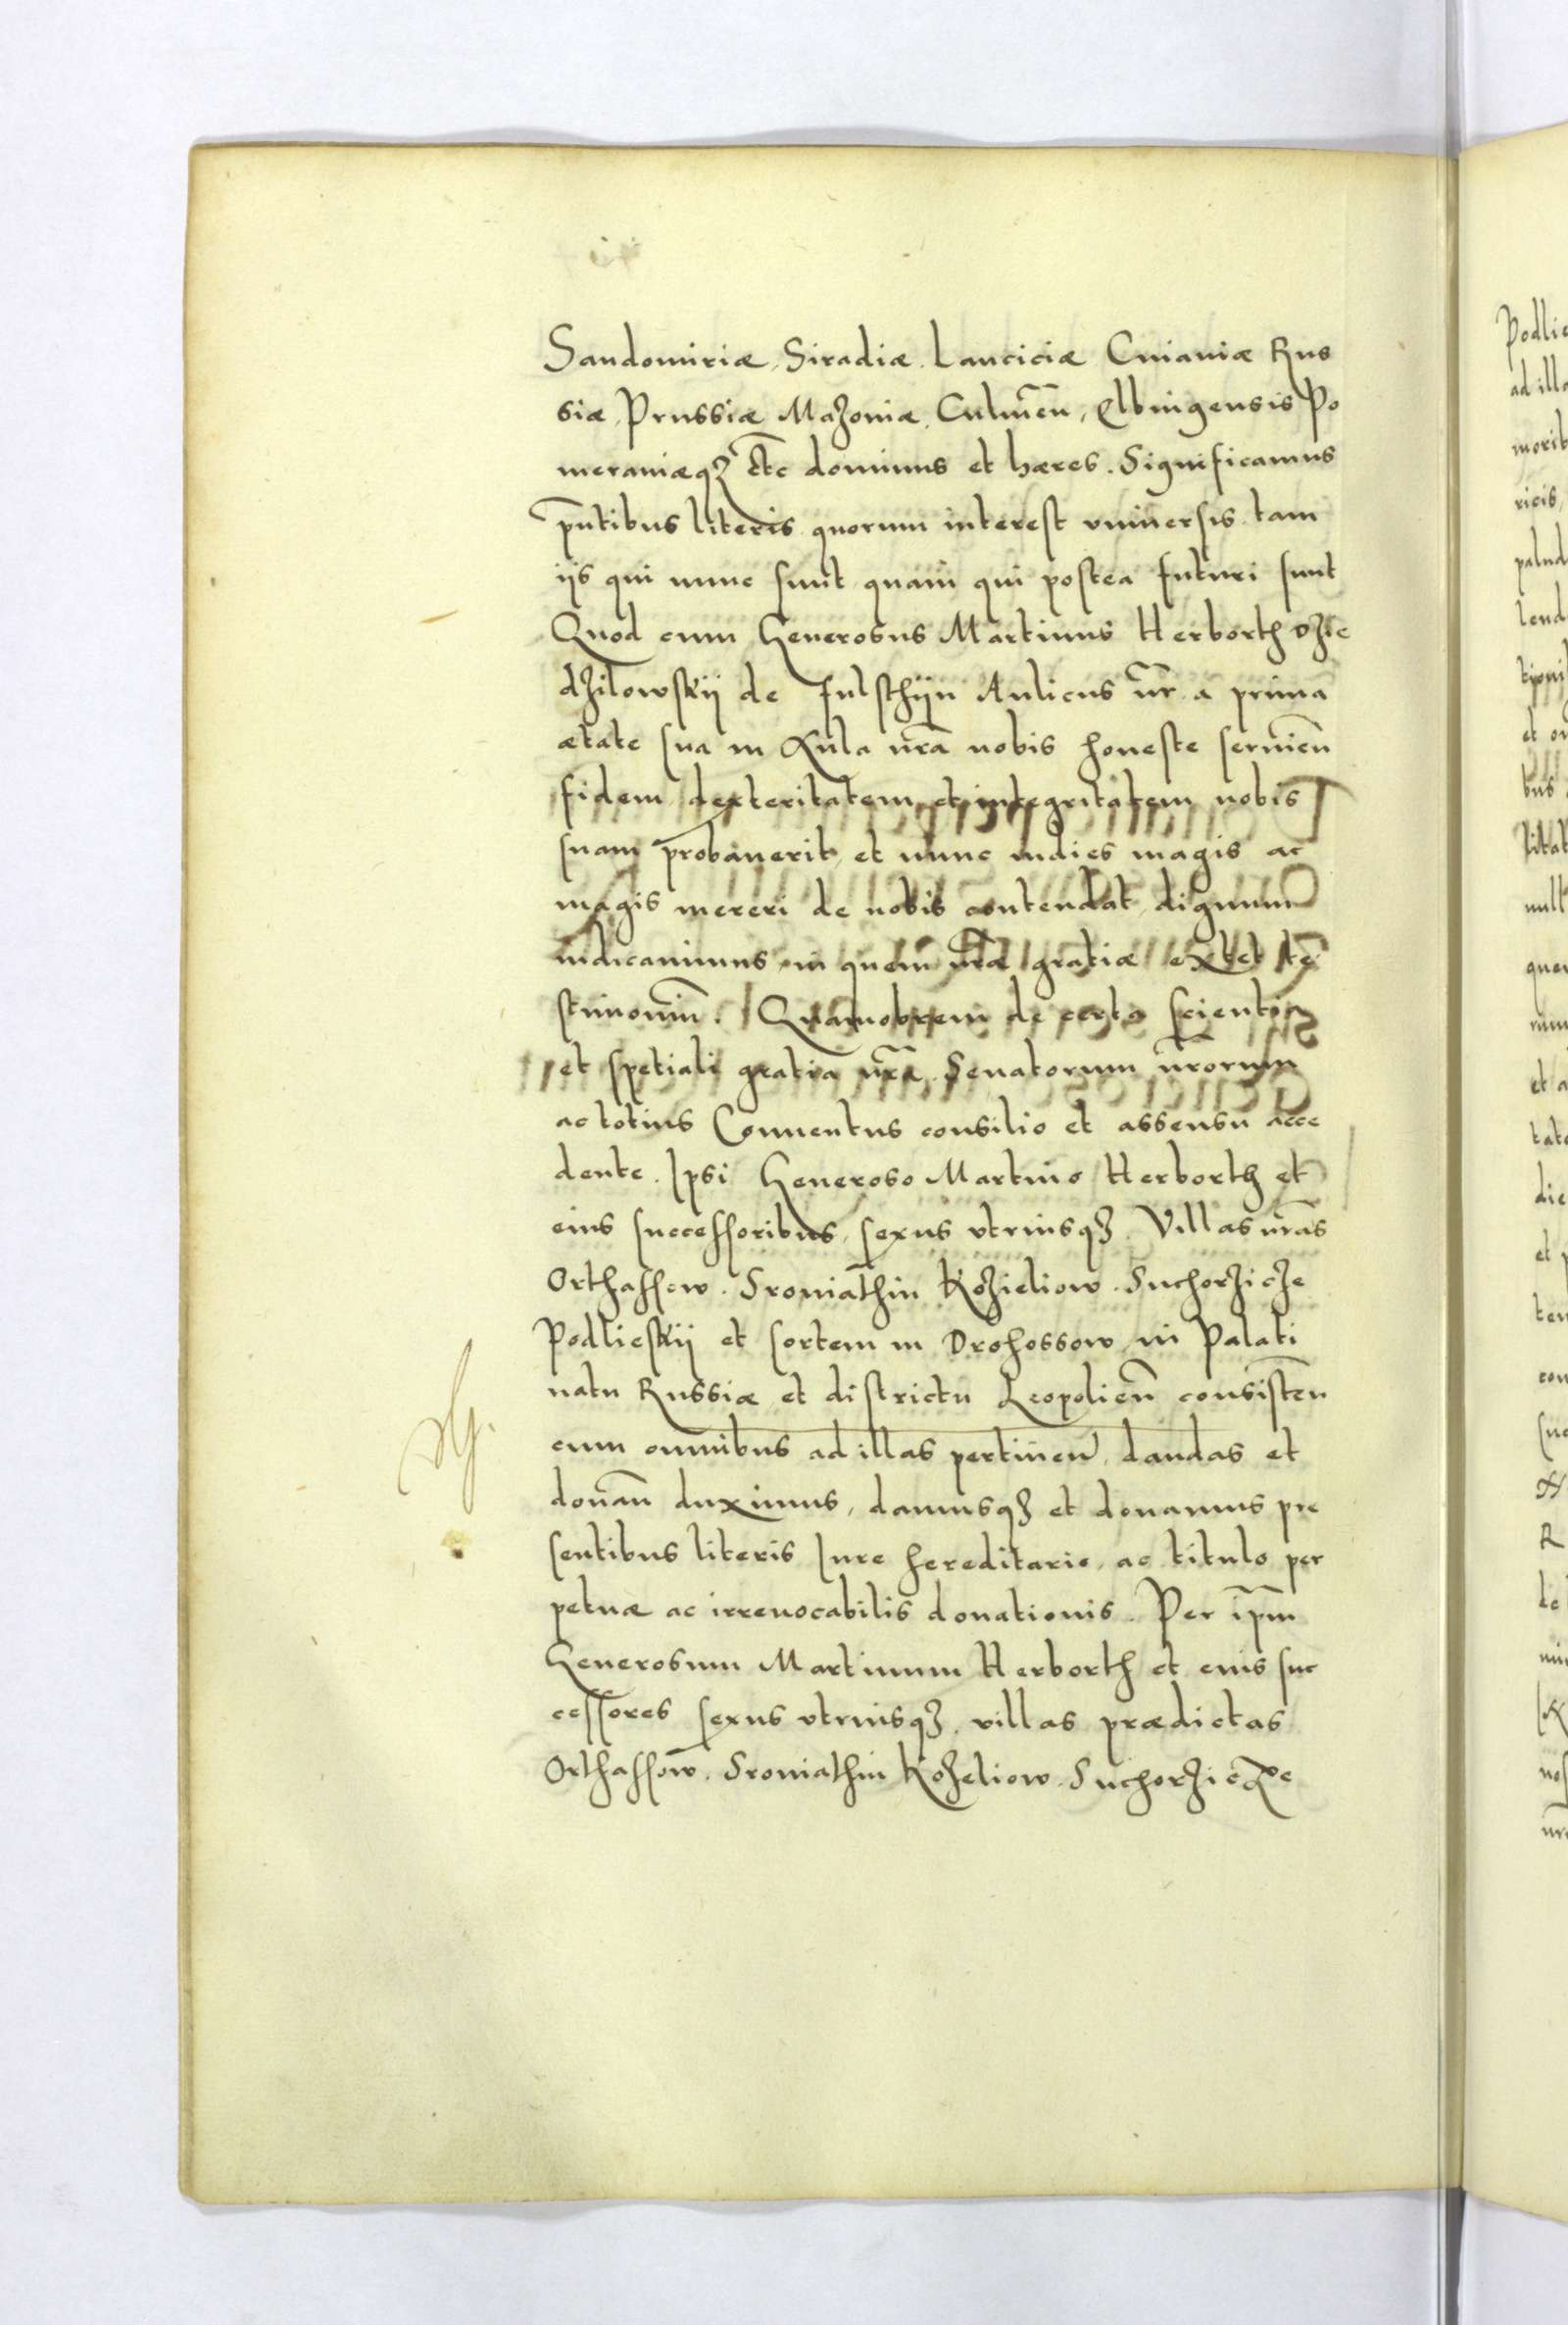 Sandomiriæ, Siradiæ, Lanciciæ Cuiauiæ Rus
siæ, Prussiæ Mazouiæ, Culmeñ, Elbingensis Po
meraniæqȝ etc̃ dominus et hæres. Significamus
pñtibus literis quorum interest vniuersis tam
ijs qui nunc sunt quam qui postea futuri sunt
Quod cum Generosus Martinus Herborth dzie
dzilowskij de Fulsthijn Aulicus nr̃ a prima
ætate sua in Aula nrã nobis honeste seruieñ
fidem, dexteritatem et integritatem nobis
suam probauerit, et nunc indies magis ac
magis mereri de nobis contendat, dignum
iudicauimus in quem nrã̃e gratiæ extet te
stimoniũ. Quamobrem de certa scientia
et spetiali gratia nrã. Senatorum nrõrum
ac totius Conuentus consilio et assensu acce
dente. Ipsi Generoso Martino Herborth et
eius successoribus, sexus vtriusqȝ. Villas nrãs
Orthassow. Sroniathin Kozieliow. Suchorzicze
Podlieskij et sortem in Drohossow in Palati
natu Russiæ et districtu Leopolieñ consisteñ
cum omnibus ad illas pertineñ, dandas et
donañ duximus, damusqȝ et donamus pre
sentibus literis Iure hereditario, ac titulo per
petuæ ac irreuocabilis donationis. Per ip̃m
Generosum Martinum Herborth et eius suc
cessores sexus vtriusqȝ, villas prædictas
Orthassow. Sroniathin Kozeliow. Suchorzicze